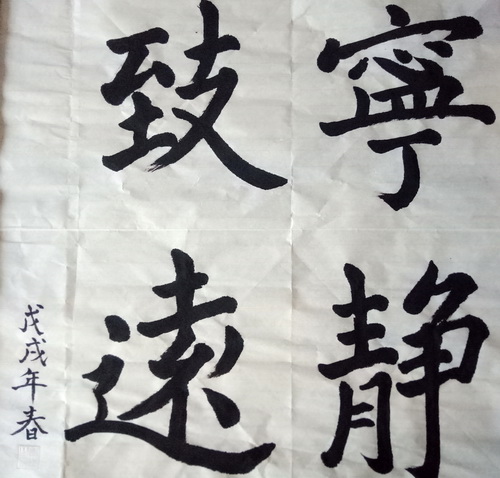 寧静
致遠
戊戌年春